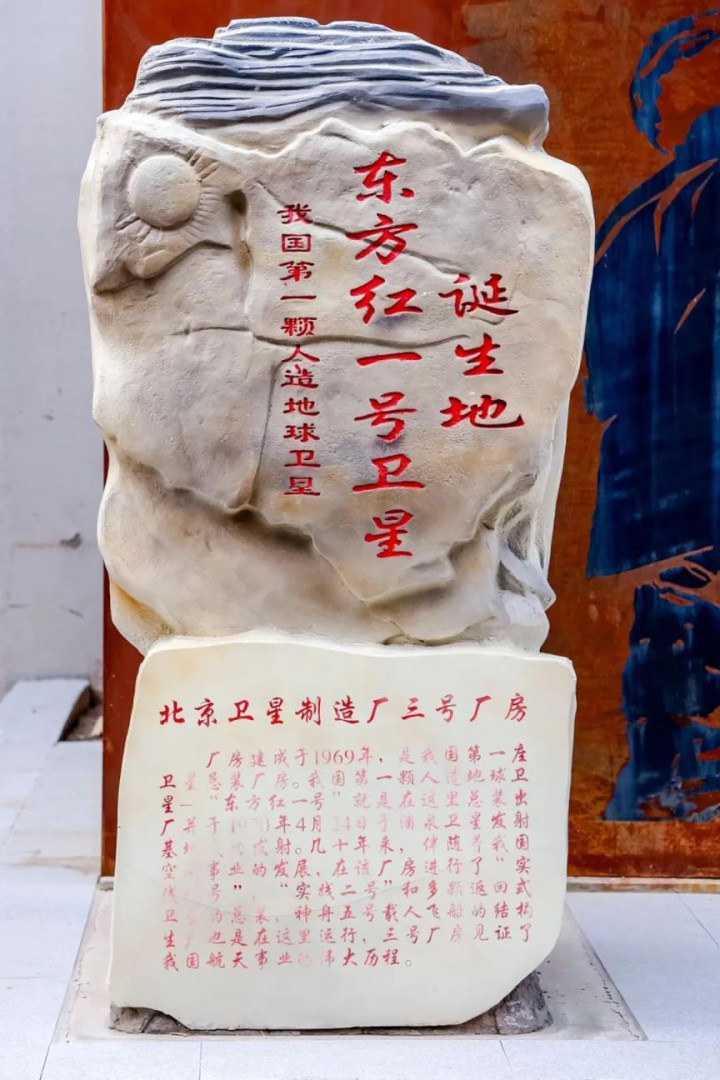 我国第一颗人造地球卫星
东方红一号卫星
诞生地
北京卫星制造厂三号厂房
厂房建成于1969年，是我国第一座
卫星总装厂房。我国第一颗人造地球卫
星“东方红一号”就是在这里总装出
厂并于1970年4月24日于酒泉卫星发射
基地发射。几十年来，伴随着我国
空事业的发展，在该厂房进行了“实
号”，“实线二号”和多颗返回式
卫的总装，神舟五号载人飞船的结构
生产也是在这里运行，三号厂房见证了
我国航天事业的伟大历程。